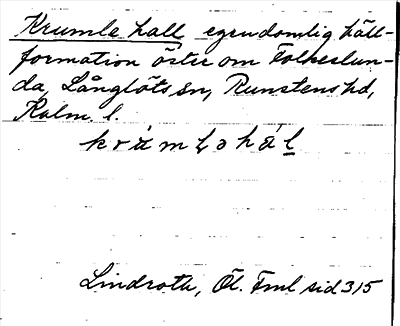 Krumle hall egendomlig häll-
formation öster om Folkeslun-
da, Långlöts sn, Runstens hd,
Kalm. l.
Lindroth, Öl. Fml sid 315